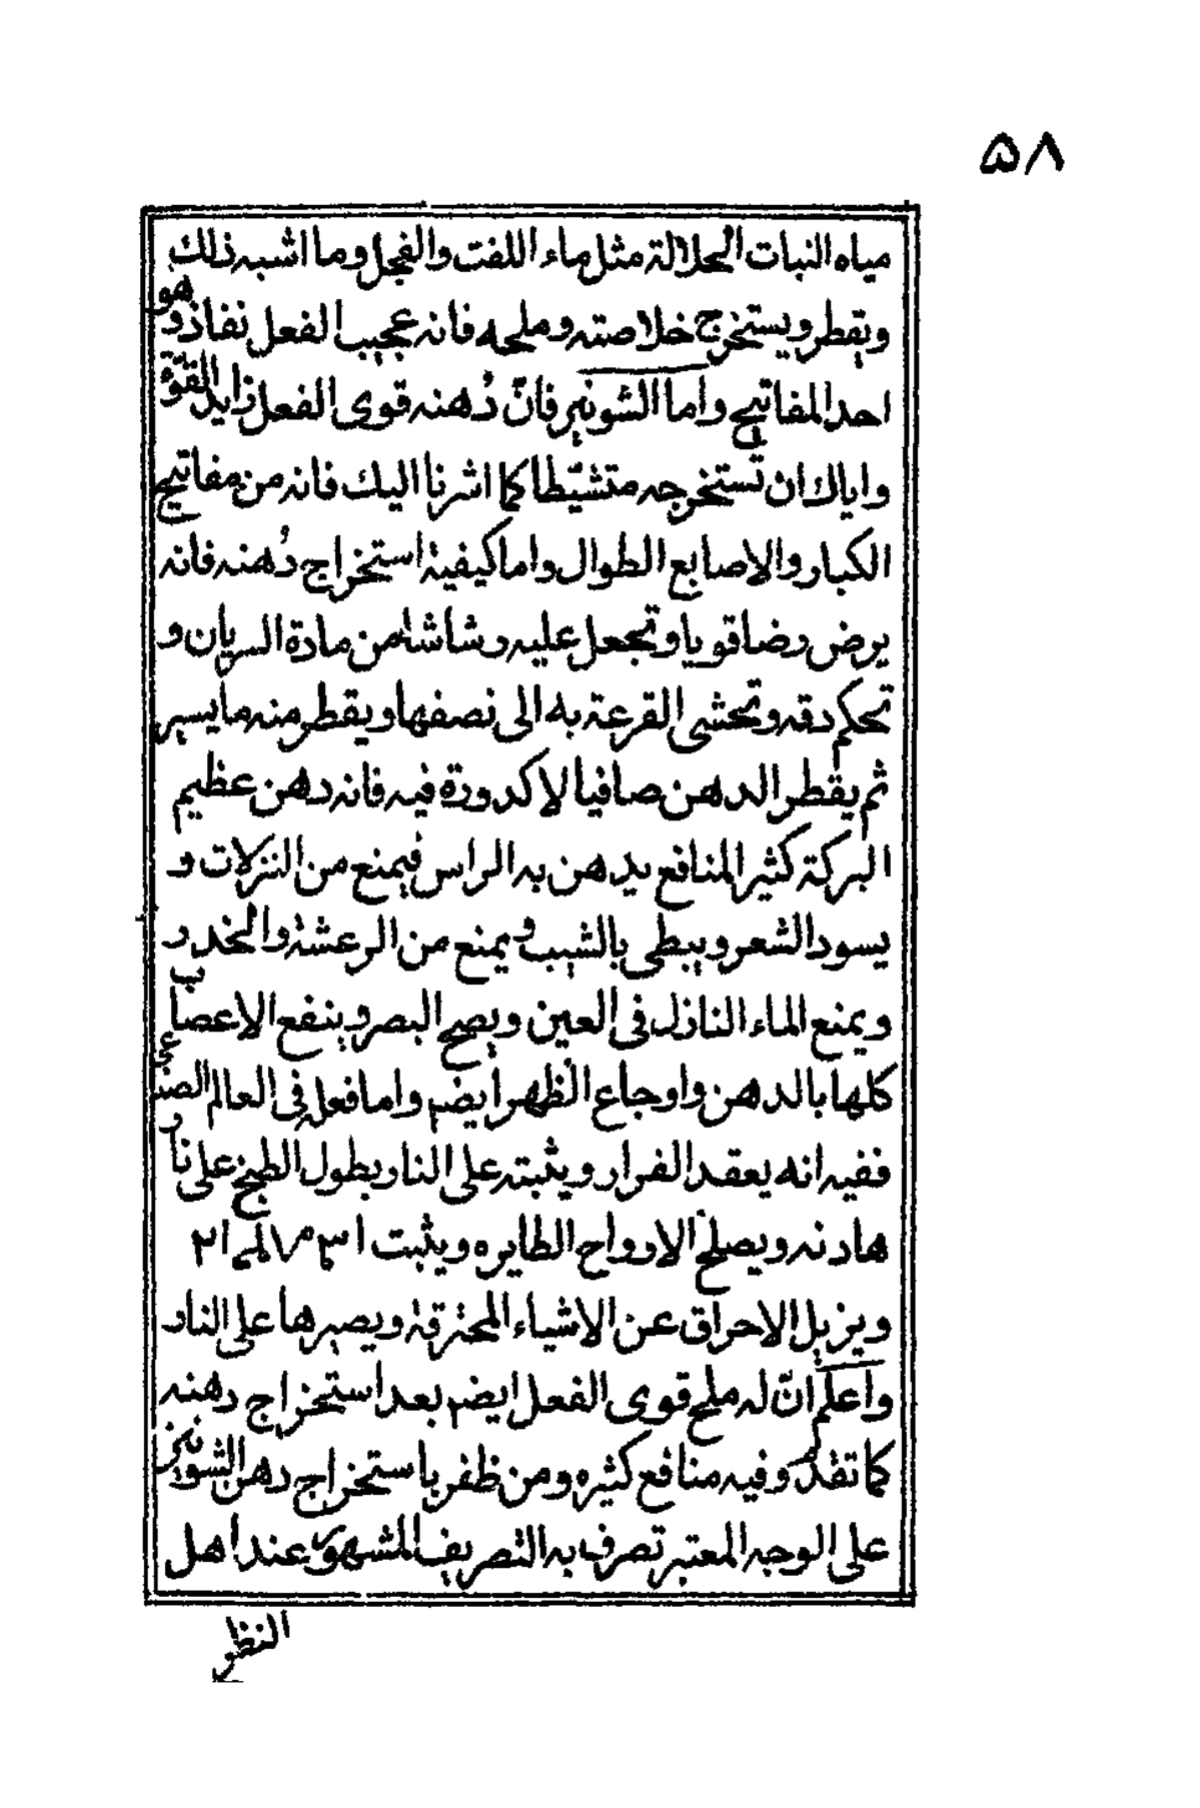 ۵۸
مياه النبات الحلالة مثل ماء اللفت والفجل وما اشبه ذلك
ويقطر ويستخرج خلاصته وملحه فانه عجيب الفعل نفاذ وهو
احد المفاتيح واما الشونيز فانّ دُهنه قوى الفعل زايد القوّة
واياك ان تستخرجه متشيّطا كما اشرنا اليك فانه من مفاتيح
الكبار والاصابع الطوال واما كيفية استخراج دُهنه فانه
يرض رضا قويا وتجعل عليه رشاشة من مادة السريان و
تحكم دقه وتحشى القرعة به الى نصفها ويقطر منه ما يسير
ثم يقطر الدهن صافيا لا كدورة فيه فانه دهن عظيم
البركة كثير المنافع يدهن به الراس فيمنع من النزلات و
يسود الشعر ويبطى بالشيب ويمنع من الرعشة والخدر
ويمنع الماء النازل فى العين ويصح البصر وينفع الاعصاب
كلها بالدهن واوجاع الظهر ايضم واما فعله فى العالم الصنعى
ففيه انه يعقد الفرار ويثبته على النار بطول الطبخ على نار
هادنه ويصلح الارواح الطايره ويثبت
ويزيل الاحراق عن الاشياء المحترقة ويصبرها على النار
واعلم انّ له ملح قوى الفعل ايضم بعد استخراج دهنه
كما تقدم وفيه منافع كثيره ومن ظفر باستخراج دهن الشونيز
على الوجه المعتبر تصرف به التصريف المشهور عند اهل
النظر